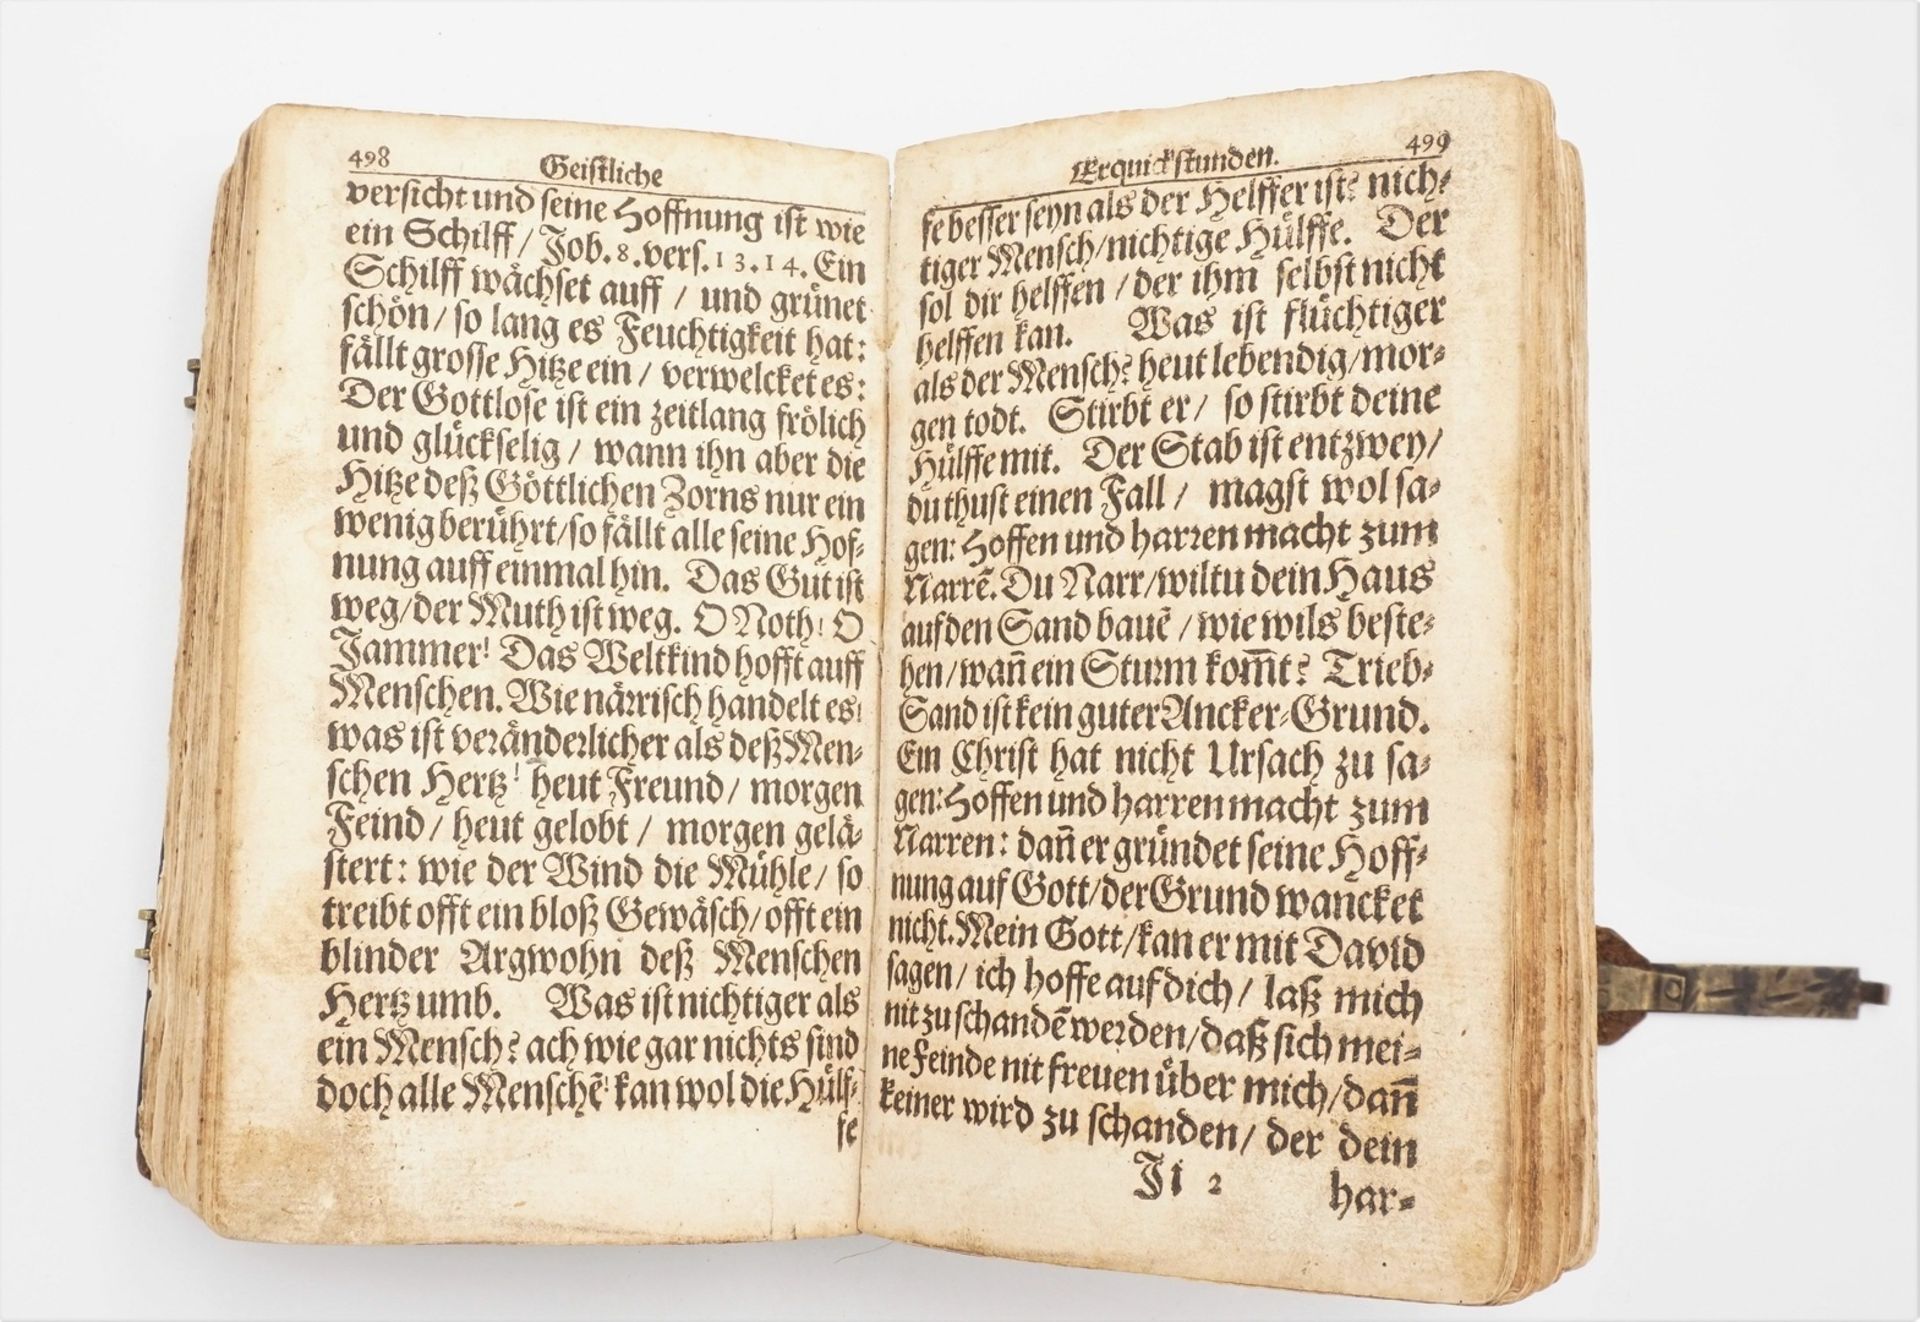 498
Geiſtliche
verſicht und ſeine Hoffnung iſt wie
ein Schilff / Job. 8. verſ. 13. 14. Ein
Schilff wächſet auff / und grünet
ſchön / ſo lang es Feuchtigkeit hat:
fällt groſſe Hitze ein / verwelcket es:
Der Gottloſe iſt ein zeitlang frölich
und glückſelig / wann ihn aber die
Hitze deß Göttlichen Zorns nur ein
wenig berührt / ſo fällt alle ſeine Hof-
nung auff einmal hin. Das Gut iſt
weg / der Muth iſt weg. O Noth! O
Jammer! Das Weltkind hofft auff
Menſchen. Wie närriſch handelt es!
was iſt veränderlicher als deß Men-
ſchen Hertz! heut Freund / morgen
Feind / heut gelobt / morgen gelä-
ſtert: wie der Wind die Mühle / ſo
treibt offt ein bloß Gewäſch / offt ein
blinder Argwohn deß Menſchen
Hertz umb. Was iſt nichtiger als
ein Menſch? ach wie gar nichts ſind
doch alle Menſchẽ! kan wol die Hülf-
fe
Erquickſtunden.
499
fe beſſer ſeyn als der Helffer iſt? nich-
tiger Menſch / nichtige Hülffe. Der
ſol dir helffen / der ihm ſelbſt nicht
helffen kan. Was iſt flüchtiger
als der Menſch? heut lebendig / mor-
gen todt. Stirbt er / ſo ſtirbt deine
Hülffe mit. Der Stab iſt entzwey /
du thuſt einen Fall / magſt wol ſa-
gen: Hoffen und harren macht zum
Narrẽ. Du Narr / wiltu dein Haus
auf den Sand bauẽ / wie wils beſte-
hen / wañ ein Sturm kom̃t? Trieb-
Sand iſt kein guter Ancker-Grund.
Ein Chriſt hat nicht Urſach zu ſa-
gen: Hoffen und harren macht zum
Narren: dañ er gründet ſeine Hoff-
nung auf Gott / der Grund wancket
nicht. Mein Gott / kan er mit David
ſagen / ich hoffe auf dich / laß mich
nit zu ſchandẽ werden / daß ſich mei-
ne Feinde nit freuen über mich / dañ
keiner wird zu ſchanden / der dein
Ji 2
har-